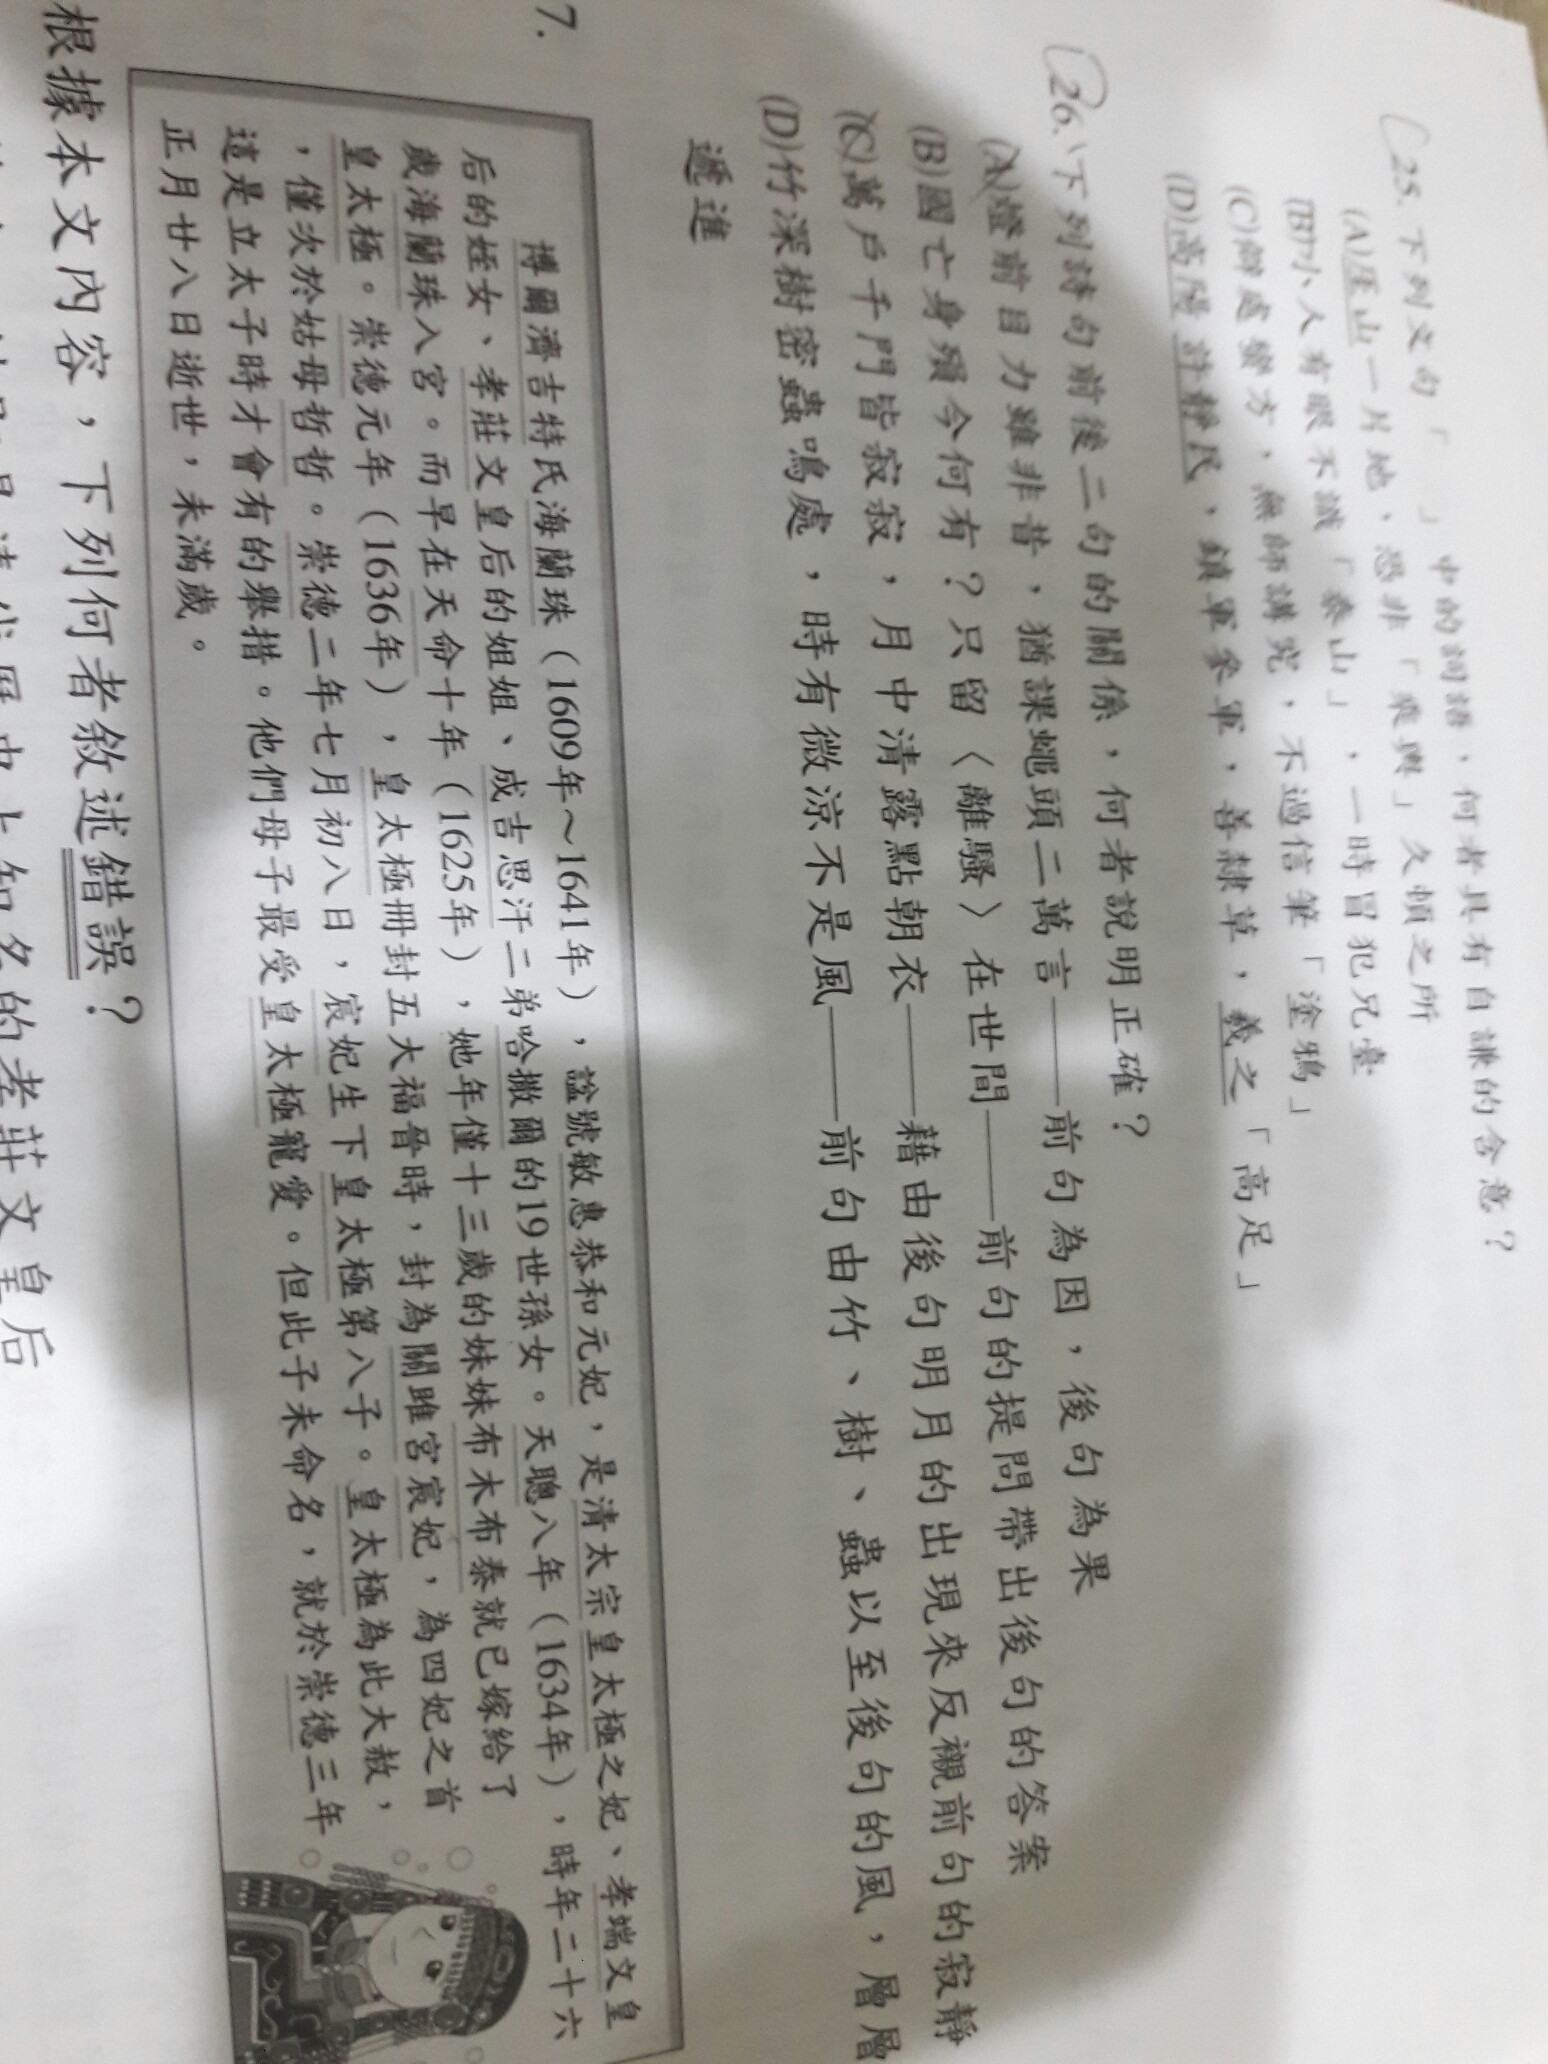 25. 下列文句「 」中的詞語，何者具有自謙的含意？
(A)巫山一片地，恐非「乘輿」久頓之所
(B)小人有眼不識「泰山」，一時冒犯兄臺
(C)僻處蠻方，無師講究，不過信筆「塗鴉」
(D)高陽許靜民，鎮軍參軍，善隸草，羲之「高足」
26. 下列詩句前後二句的關係，何者說明正確？
(A)燈前目力雖非昔，猶課蠅頭二萬言——前句為因，後句為果
(B)國亡身殞今何有？只留〈離騷〉在世間——前句的提問帶出後句的答案
(C)萬戶千門皆寂寂，月中清露點朝衣——藉由後句明月的出現來反襯前句的寂靜
(D)竹深樹密蟲鳴處，時有微涼不是風——前句由竹、樹、蟲以至後句的風，層層
遞進
7.
博爾濟吉特氏海蘭珠（1609年～1641年），諡號敏惠恭和元妃，是清太宗皇太極之妃、孝端文皇
后的姪女、孝莊文皇后的姐姐、成吉思汗二弟哈撒爾的19世孫女。天聰八年（1634年），時年二十六
歲海蘭珠入宮。而早在天命十年（1625年），她年僅十三歲的妹妹布木布泰就已嫁給了
皇太極。崇德元年（1636年），皇太極冊封五大福晉時，封為關雎宮宸妃，為四妃之首
，僅次於姑母哲哲。崇德二年七月初八日，宸妃生下皇太極第八子。皇太極為此大赦，
這是立太子時才會有的舉措。他們母子最受皇太極寵愛。但此子未命名，就於崇德三年
正月廿八日逝世，未滿歲。
根據本文內容，下列何者敘述錯誤？
清代歷史上知名的孝莊文皇后